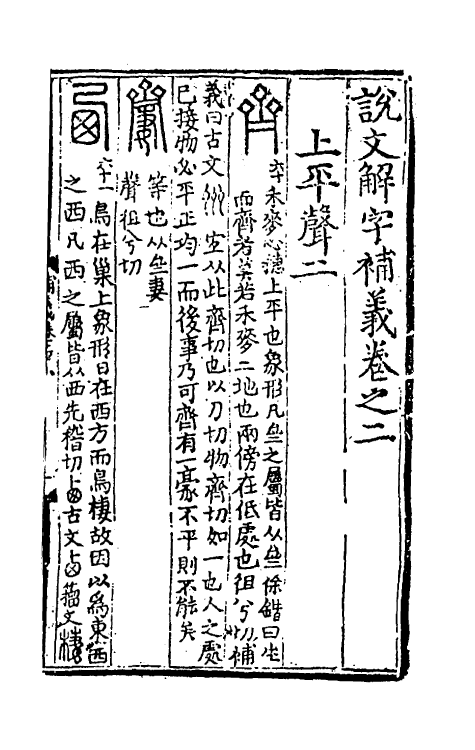 說文解字補義卷之二
上平聲二
禾麥吐穗上平也象形凡亝之屬皆从亝徐鍇曰生
而齊者莫若禾麥二地也兩傍在低處也徂兮切補
義曰古文 宜从此齊切也以刀切物齊切如一也人之處
已接物必平正均一而後事乃可齊有一豪不平則不能矣
等也从亝妻
聲徂兮切
鳥在巢上象形日在西方而鳥棲故因以爲東西
之西凡西之屬皆从西先稽切 古文 籀文棲